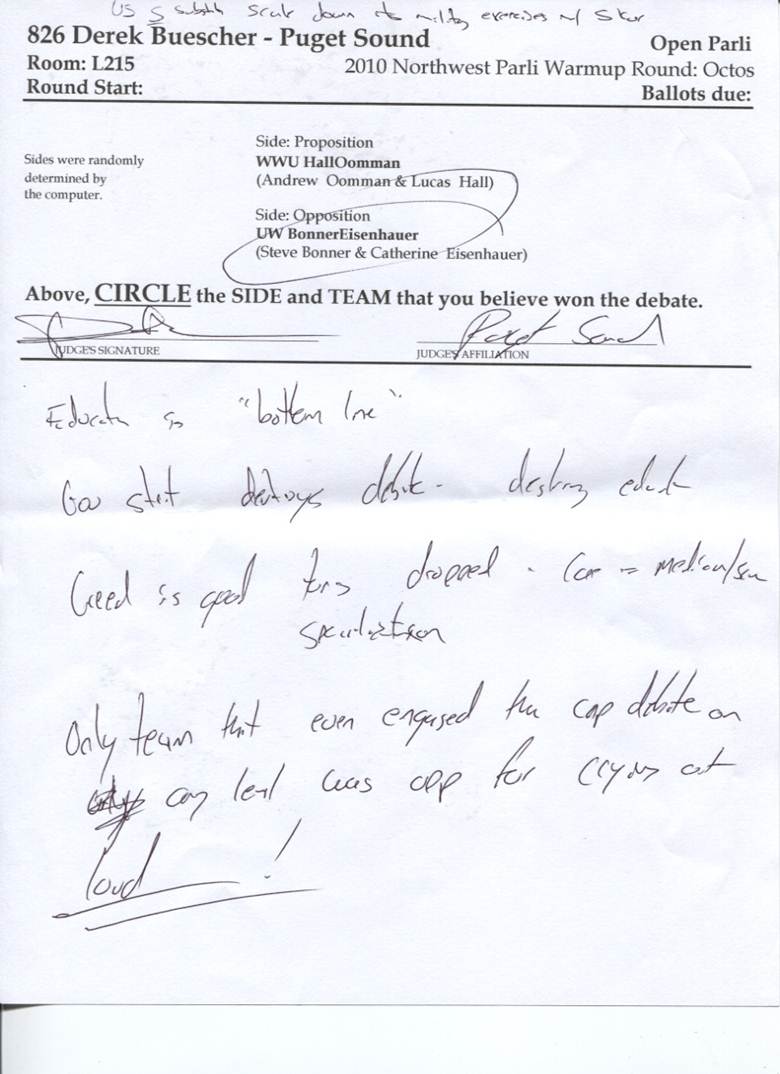 US S substh scale down its military exercises w/ S Kor
826 Derek Buescher - Puget Sound
Open Parli
Room: L215
2010 Northwest Parli Warmup Round: Octos
Round Start:
Ballots due:
Sides were randomly
determined by
the computer.
Side: Proposition
WWU HallOomman
(Andrew Oomman & Lucas Hall)
Side: Opposition
UW BonnerEisenhauer
(Steve Bonner & Catherine Eisenhauer)
Above, CIRCLE the SIDE and TEAM that you believe won the debate.
Puget Sound
JUDGE'S SIGNATURE
JUDGE'S AFFILIATION
is "bottom line"
Gov destroys debate - destroy
Greed is good dropped -
Only team that even engaged the cap debate on
any level was opp for crying out
loud!